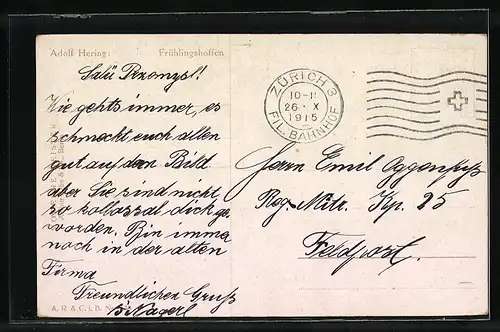 Adolf Hering: Frühlingshoffen
Salü Przemysl!
Wie gehts immer, es
schmeckt euch allen
gut auf dem Bild
aber Sie sind nicht
so kollossal dick ge-
worden. Bin imme
noch in der alten
Firma
Freundlichen Gruß
A. R. & C. i. B.
ZÜRICH 3
10-11
26. X
1915
FIL. BAHNHOF
Herrn Emil Oggenfuß
Reg. Mitr. Kp. 25
Feldpost.